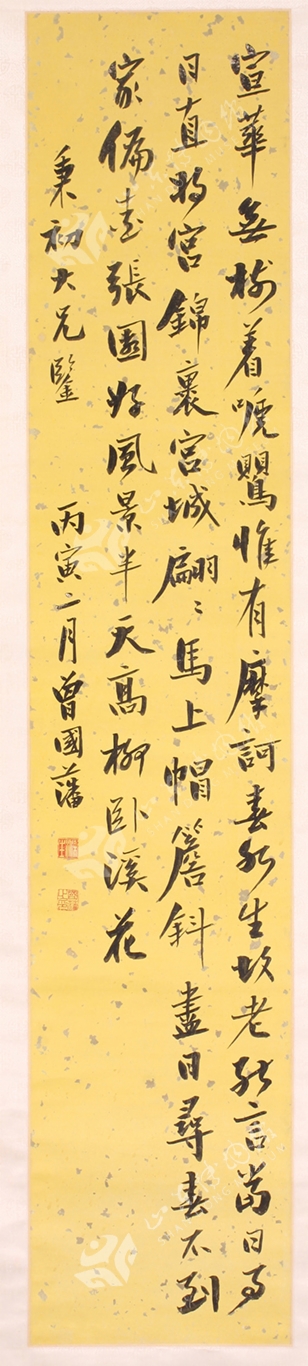 宣華無樹着嗁鸎惟有摩訶春水生故老能言當日事
日直將宮錦裹宮城翩〻馬上帽簷斜盡日尋春不到
家偏愛張園好風景半天高柳卧溪花
秉初大兄鑒 丙寅二月曾國藩